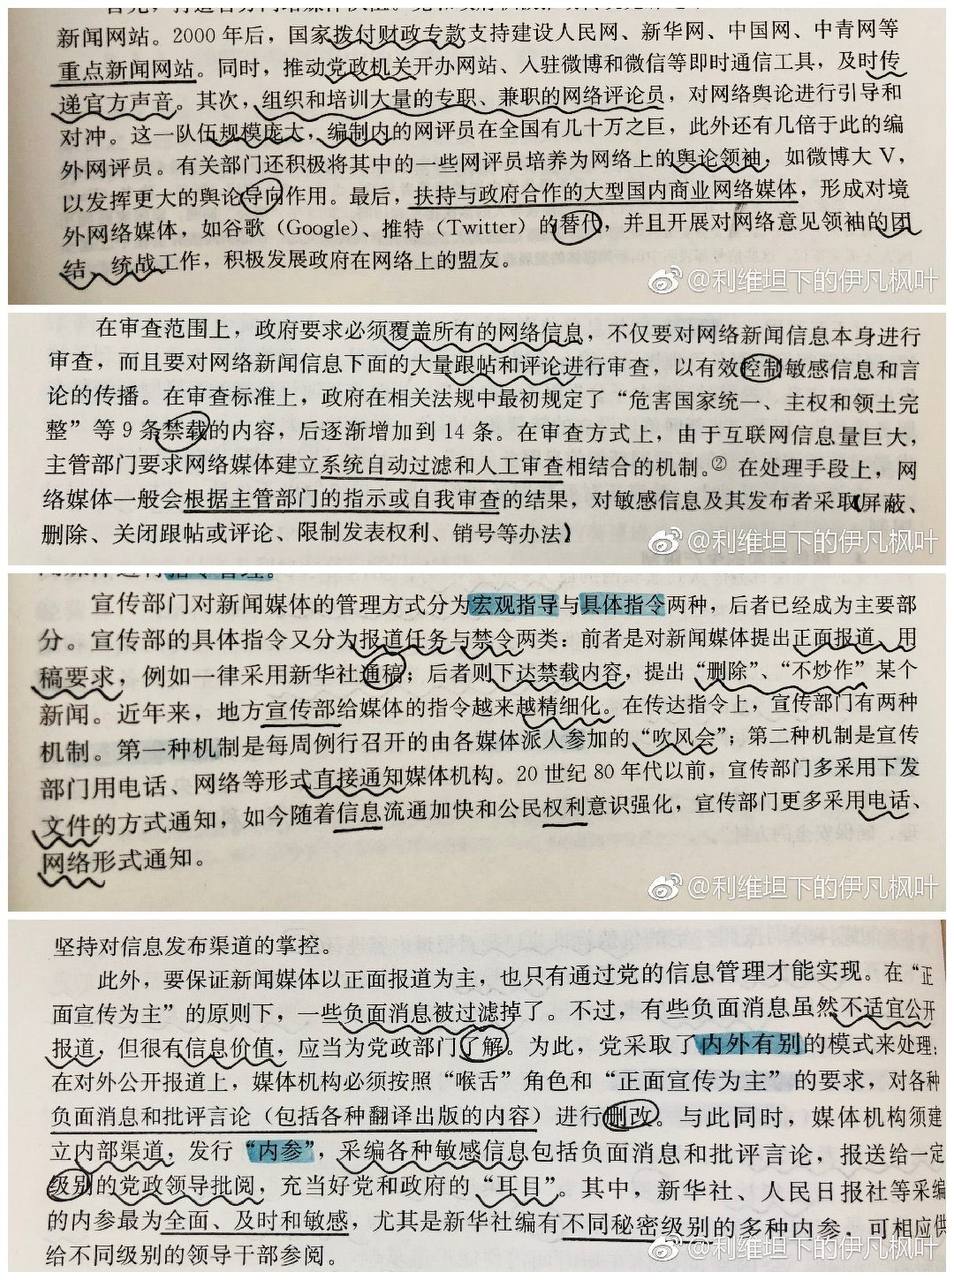 新闻网站。2000年后，国家拨付财政专款支持建设人民网、新华网、中国网、中青网等
重点新闻网站。同时，推动党政机关开办网站、入驻微博和微信等即时通信工具，及时传
递官方声音。其次，组织和培训大量的专职、兼职的网络评论员，对网络舆论进行引导和
对冲。这一队伍规模庞大，编制内的网评员在全国有几十万之巨，此外还有几倍于此的编
外网评员。有关部门还积极将其中的一些网评员培养为网络上的舆论领袖，如微博大V，
以发挥更大的舆论导向作用。最后，扶持与政府合作的大型国内商业网络媒体，形成对境
外网络媒体，如谷歌（Google）、推特（Twitter）的替代，并且开展对网络意见领袖的团
结、统战工作，积极发展政府在网络上的盟友。
@利维坦下的伊凡枫叶
在审查范围上，政府要求必须覆盖所有的网络信息，不仅要对网络新闻信息本身进行
审查，而且要对网络新闻信息下面的大量跟帖和评论进行审查，以有效控制敏感信息和言
论的传播。在审查标准上，政府在相关法规中最初规定了“危害国家统一、主权和领土完
整”等9条禁载的内容，后逐渐增加到14条。在审查方式上，由于互联网信息量巨大，
主管部门要求网络媒体建立系统自动过滤和人工审查相结合的机制。② 在处理手段上，网
络媒体一般会根据主管部门的指示或自我审查的结果，对敏感信息及其发布者采取屏蔽、
删除、关闭跟帖或评论、限制发表权利、销号等办法
@利维坦下的伊凡枫叶
宣传部门对新闻媒体的管理方式分为宏观指导与具体指令两种，后者已经成为主要部
分。宣传部的具体指令又分为报道任务与禁令两类：前者是对新闻媒体提出正面报道、用
稿要求，例如一律采用新华社通稿；后者则下达禁载内容，提出“删除”、“不炒作”某个
新闻。近年来，地方宣传部给媒体的指令越来越精细化。在传达指令上，宣传部门有两种
机制。第一种机制是每周例行召开的由各媒体派人参加的“吹风会”；第二种机制是宣传
部门用电话、网络等形式直接通知媒体机构。20世纪80年代以前，宣传部门多采用下发
文件的方式通知，如今随着信息流通加快和公民权利意识强化，宣传部门更多采用电话、
网络形式通知。
@利维坦下的伊凡枫叶
坚持对信息发布渠道的掌控。
此外，要保证新闻媒体以正面报道为主，也只有通过党的信息管理才能实现。在“正
面宣传为主”的原则下，一些负面消息被过滤掉了。不过，有些负面消息虽然不适宜公开
报道，但很有信息价值，应当为党政部门了解。为此，党采取了内外有别的模式来处理：
在对外公开报道上，媒体机构必须按照“喉舌”角色和“正面宣传为主”的要求，对各种
负面消息和批评言论（包括各种翻译出版的内容）进行删改。与此同时，媒体机构须建
立内部渠道，发行“内参”，采编各种敏感信息包括负面消息和批评言论，报送给一定
级别的党政领导批阅，充当好党和政府的“耳目”。其中，新华社、人民日报社等采编
的内参最为全面、及时和敏感，尤其是新华社编有不同秘密级别的多种内参，可相应供
给不同级别的领导干部参阅。
@利维坦下的伊凡枫叶